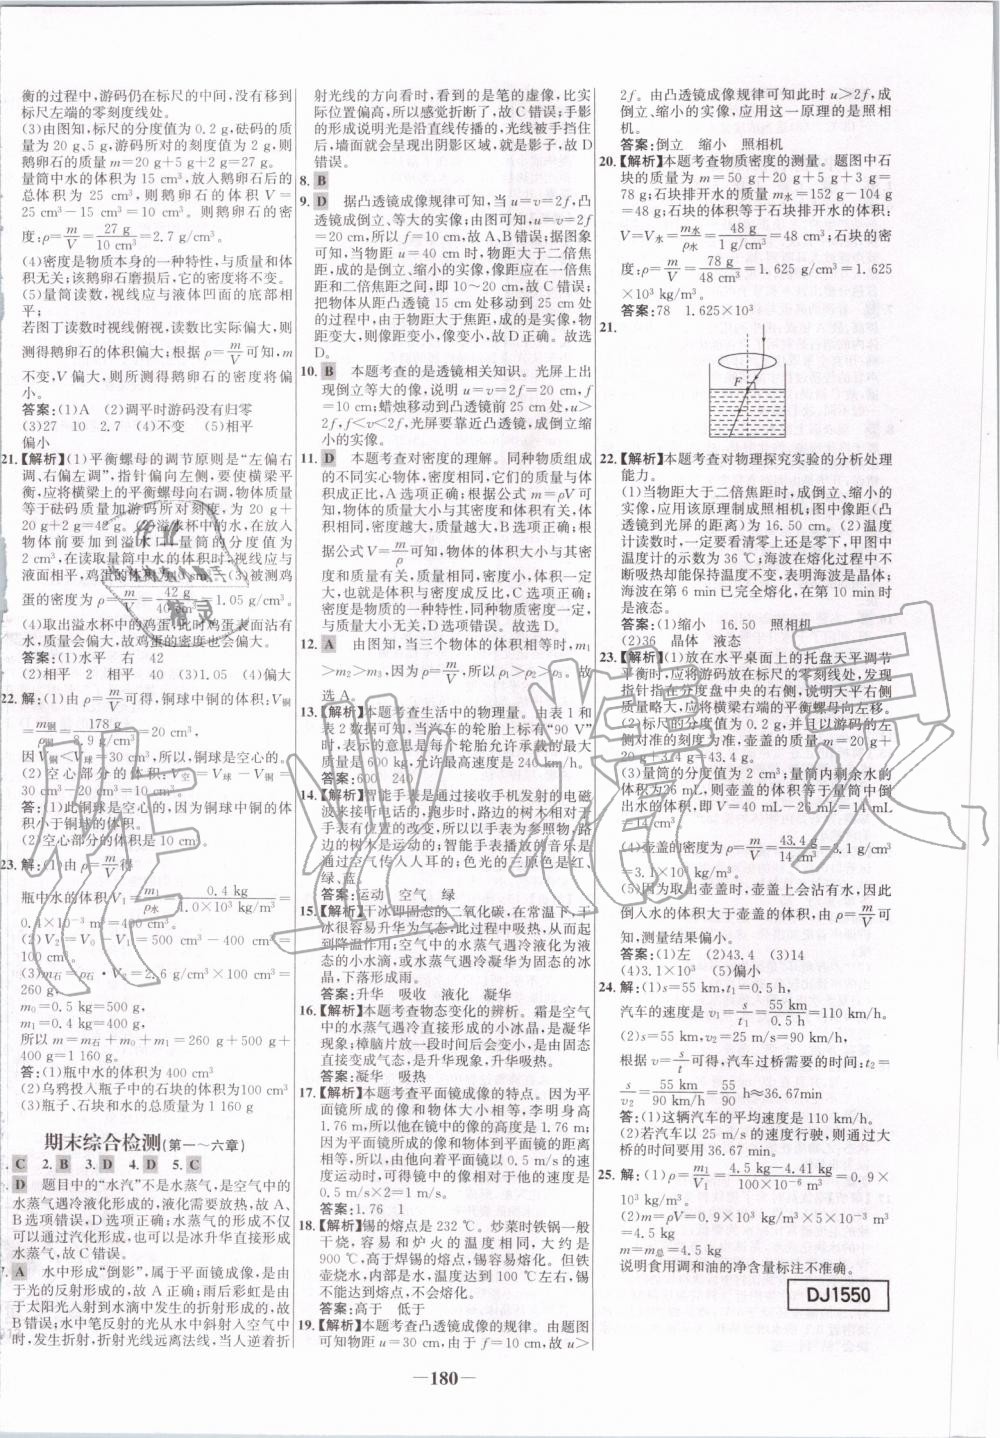 衡的过程中,游码仍在标尺的中间,没有移到
标尺左端的零刻度线处。
(3)由图知,标尺的分度值为 0.2 g,砝码的质
量为 20 g、5 g,游码所对的刻度值为 2 g,则
鹅卵石的质量 m=20 g+5 g+2 g=27 g。
量筒中水的体积为 15 cm³,放入鹅卵石后的
总体积为 25 cm³,则鹅卵石的体积 V=
25 cm³-15 cm³=10 cm³。则鹅卵石的密
度:ρ=m/V=27 g/10 cm³=2.7 g/cm³。
(4)密度是物质本身的一种特性,与质量和体
积无关;该鹅卵石磨损后,它的密度将不变。
(5)量筒读数,视线应与液体凹面的底部相
平;
若图丁读数时视线俯视,读数比实际偏大,则
测得鹅卵石的体积偏大;根据 ρ=m/V可知,m
不变,V 偏大,则所测得鹅卵石的密度将偏
小。
答案:(1)A (2)调平时游码没有归零
(3)27 10 2.7 (4)不变 (5)相平
偏小
21.【解析】(1)平衡螺母的调节原则是“左偏右
调、右偏左调”,指针偏向左侧,要使横梁平
衡,应将横梁上的平衡螺母向右调,物体质量
等于砝码质量加游码所对刻度,为 20 g+
20 g+2 g=42 g。(2)溢水杯中的水,在放入
物体前要加到溢水口;量筒的分度值为
2 cm³,在读取量筒中水的体积时,视线应与
液面相平,鸡蛋的体积为 40 cm³。(3)被测鸡
蛋的密度为 ρ=m/V=42 g/40 cm³=1.05 g/cm³。
(4)取出溢水杯中的鸡蛋,此时鸡蛋表面沾有
水,质量会偏大,故鸡蛋的密度也会偏大。
答案:(1)水平 右 42
(2)相平 2 相平 40 (3)1.05 (4)偏大
22.解:(1)由 ρ=m/V可得,铜球中铜的体积:V铜
=m铜/ρ铜=178 g/8.9 g/cm³=20 cm³,
因 V铜<V球=30 cm³,所以,铜球是空心的。
(2)空心部分的体积:V空=V球-V铜=
30 cm³-20 cm³=10 cm³。
答:(1)此铜球是空心的,因铜球中铜的体积
小于铜球的体积。
(2)空心部分的体积是 10 cm³。
23.解:(1)由 ρ=m/V得
瓶中水的体积 V₁=m₁/ρ水=0.4 kg/1.0×10³ kg/m³=
0.4×10⁻³ m³=400 cm³。
(2)V₂=V₀-V₁=500 cm³-400 cm³=
100 cm³。
(3)m石=ρ石·V₂=2.6 g/cm³×100 cm³=
260 g,
m₀=0.5 kg=500 g,
m₁=0.4 kg=400 g,
所以 m=m石+m₀+m₁=260 g+500 g+
400 g=1 160 g。
答:(1)瓶中水的体积为400 cm³
(2)乌鸦投入瓶子中的石块的体积为100 cm³
(3)瓶子、石块和水的总质量为 1 160 g
期末综合检测(第一~六章)
. C 2. B 3. D 4. D 5. C
D 题目中的“水汽”不是水蒸气,是空气中的
水蒸气遇冷液化形成的,液化需要放热,故 A、
B 选项错误,D 选项正确;水蒸气的形成不仅
可以通过汽化形成,也可以是冰升华直接形成
水蒸气,故 C 错误。
7. A 水中形成“倒影”,属于平面镜成像,是由
于光的反射形成的,故 A 正确;雨后彩虹是由
于太阳光入射到水滴中发生的折射形成的,故
B 错误;水中笔反射的光从水中斜射入空气中
时,发生折射,折射光线远离法线,当人逆着折
射光线的方向看时,看到的是笔的虚像,比实
际位置偏高,所以感觉折断了,故 C 错误;手影
的形成说明光是沿直线传播的,光线被手挡住
后,墙面就会呈现出阴影区域,就是影子,故 D
错误。
8. B
9. D 据凸透镜成像规律可知,当 u=v=2f,凸
透镜成倒立、等大的实像;由图可知,u=v=2f
=20 cm,所以 f=10 cm,故 A、B 错误;据图象
可知,当物距 u=40 cm 时,物距大于二倍焦
距,成的是倒立、缩小的实像,像距应在一倍焦
距和二倍焦距之间,即 10~20 cm,故 C 错误;
把物体从距凸透镜 15 cm 处移动到 25 cm 处
的过程中,由于物距大于焦距,成的是实像,物
距变大,则像距变小,像变小,故 D 正确。故选
D。
10. B 本题考查的是透镜相关知识。光屏上出
现倒立等大的像,说明 u=v=2f=20 cm,f
=10 cm;蜡烛移动到凸透镜前 25 cm 处,u>
2f,f<v<2f,光屏要靠近凸透镜,成倒立缩
小的实像,故 B 正确。
11. D 本题考查对密度的理解。同种物质组成
的不同实心物体,密度相同,它们的质量与体
积成正比,A 选项正确;根据公式 m=ρV 可
知,物体的质量与密度和体积有关,体积相同
时,密度越大,质量越大,B 选项正确;根
据公式 V=m/ρ可知,物体的体积与物体的密
度和质量有关,质量相同时,密度小,体积
大,也就是体积与密度成反比,C 选项正确;
密度是物质的一种特性,同种物质密度一定,
与质量无关,D 选项错误。故选 D。
12. A 由图知,当三个物体的体积相等时,m₁
>m₂>m₃,因为 ρ=m/V,所以 ρ₁>ρ₂>ρ₃。故
选 A。
13.【解析】本题考查生活中的物理量。由表 1 和
表 2 数据可知,当汽车的轮胎上标有“90 V”
时,表示的意思是每个轮胎允许承载的最大
质量是 600 kg,允许最高速度是 240 km/h。
答案:600 240
14.【解析】智能手表是通过接收手机发射的电磁
波接听电话的,跑步时,路边的树木相对于
手表有位置的改变,所以以手表为参照物,路
边的树木是运动的;智能手表播放的音乐是
通过空气传入人耳的;色光的三原色是红、
绿、蓝。
答案:运动 空气 绿
15.【解析】干冰即固态的二氧化碳,在常温下,干
冰很容易升华为气态,此过程中吸热,从而起
到降温作用;空气中的水蒸气遇冷液化为液
态的小水滴,或水蒸气遇冷凝华为固态的小
冰晶,下落形成雨。
答案:升华 吸收 液化 凝华
16.【解析】本题考查物态变化的辨析。霜是空气
中的水蒸气遇冷直接形成的小冰晶,是凝华
现象;樟脑片放一段时间后会变小,是由固态
直接变成气态,是升华现象,升华吸热。
答案:凝华 吸热
17.【解析】本题考查平面镜成像的特点。因为平
面镜所成的像和物体大小相等,李明身高
1.76 m,所以他在镜中的像的高度也是
1.76 m;因为像到平面镜的距离与实物到平
面镜的距离相等,所以他向着平面镜以 0.5 m/s 的速
度运动时,可得镜中的像相对于他的速度是
0.5 m/s×2=1 m/s。
答案:1.76 1
18.【解析】锡的熔点是 232 ℃。炒菜时铁锅一般
是高于焊锡的熔点,易熔化。
答案:高于 低于
19.【解析】本题考查凸透镜成像的规律。由题图
可知物距 u=30 cm,由于 f=10 cm,故 u>
2f。由凸透镜成像规律可知此时 u>2f,成
倒立、缩小的实像,应用这一原理的是照相
机。
答案:倒立 缩小 照相机
20.【解析】本题考查物质密度的测量。题图中石
块的质量为 m=50 g+20 g+5 g+3 g=
78 g;石块排开水的质量 m水=152 g-104 g
=48 g;石块的体积等于石块排开水的体积:
V=V水=m水/ρ水=48 g/1 g/cm³=48 cm³;石块的密
度:ρ=m/V=78 g/48 cm³=1.625 g/cm³=1.625
×10³ kg/m³。
答案:78 1.625×10³
21.
F
22.【解析】本题考查对物理探究实验的分析处理
能力。
(1)当物距大于二倍焦距时,成倒立、缩小的
实像,应用该原理制成照相机;图中像距(凸
透镜到光屏的距离)为 16.50 cm。(2)温度
计读数时,一定要看清零上还是零下,甲图中
温度计的示数为 36 ℃;海波在熔化过程中不
断吸热却能保持温度不变,说明海波是晶体;
海波在第 6 min 已完全熔化,在第 10 min 时
是液态。
答案:(1)缩小 16.50 照相机
(2)36 晶体 液态
23.【解析】(1)放在水平桌面上的托盘天平调节
平衡时,应将游码放在标尺的零刻线处,发现
指针指在分度盘中央的右侧,说明天平右侧
质量偏大,应将横梁的平衡螺母向左移。
(2)标尺的分度值为 0.2 g,并且以游码的左
侧对准的刻度为准,壶盖的质量为 20 g+
20 g+3.4 g=43.4 g。
(3)量筒的分度值为 2 mL;量筒内剩余水的
体积为 26 mL,则壶盖的体积等于量筒中倒
出水的体积,即 V=40 mL-26 mL=14 mL
=14 cm³。
(4)壶盖的密度为 ρ=m/V=43.4 g/14 cm³=3.1 g/cm³
=3.1×10³ kg/m³。
(5)因为取出壶盖时,壶盖上会沾有水,因此
倒入水的体积大于壶盖的体积,由 ρ=m/V可
知,测量结果偏小。
答案:(1)左 (2)43.4 (3)14
(4)3.1×10³ (5)偏小
24.解:(1)s=55 km,t₁=0.5 h,
汽车的速度是 v₁=s/t₁=55 km/0.5 h=110 km/h。
(2)s=55 km,v₂=25 m/s=90 km/h,
根据 v=s/t可得,汽车过桥需要的时间:t₂=
s/v₂=55 km/90 km/h=55/90 h≈36.67min
答:(1)这辆汽车的平均速度是 110 km/h。
(2)若汽车以 25 m/s 的速度行驶,则通过大
桥的时间要用 36.67 min。
25.解:(1)ρ=m₁/V₁=4.5 kg-4.41 kg/100×10⁻⁶ m³=0.9×
10³ kg/m³。
(2)m=ρV=0.9×10³ kg/m³×5×10⁻³ m³
=4.5 kg
m=m总=4.5 kg
说明食用调和油的净含量标注不准确。
DJ1550
—180—